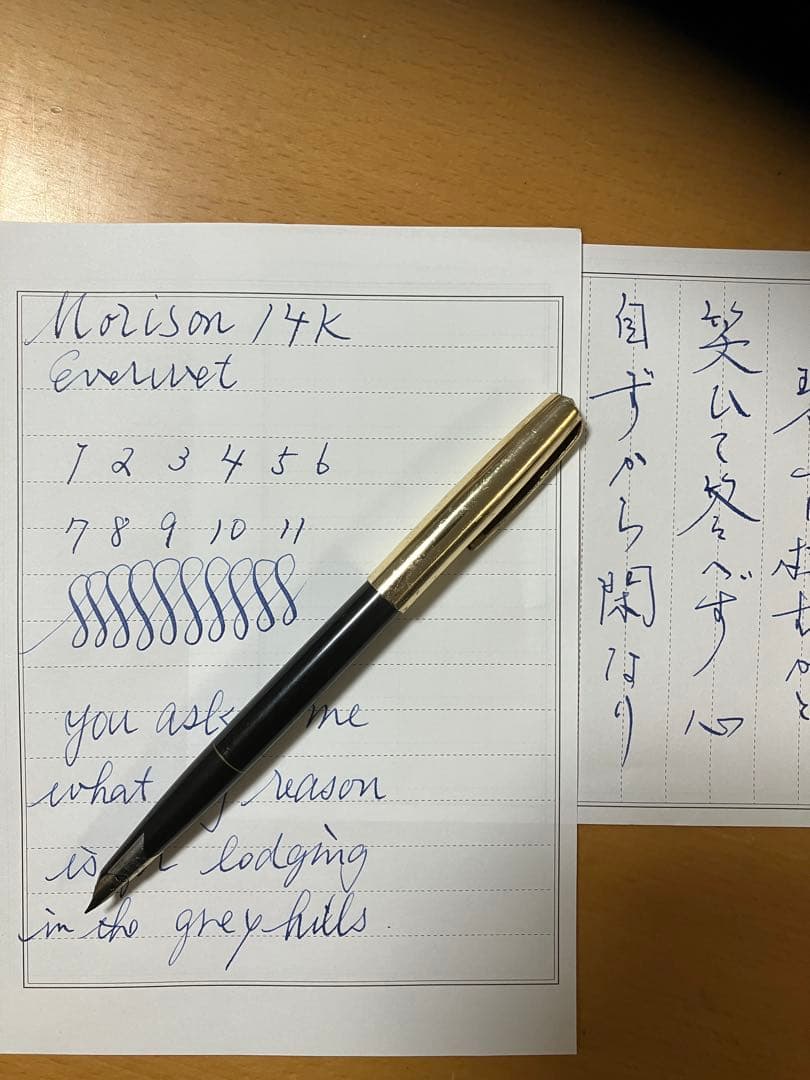 Morison 14K
Everwet
1 2 3 4 5 6
7 8 9 10 11
you ask me
what reason
is lodging
in the grey hills.
笑ひて答へず 心
自ずから閑なり